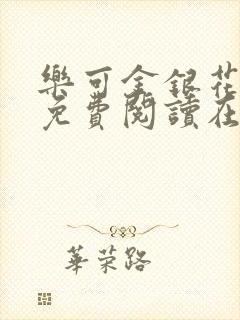 樂可金銀花
免費閱讀在
華荣路